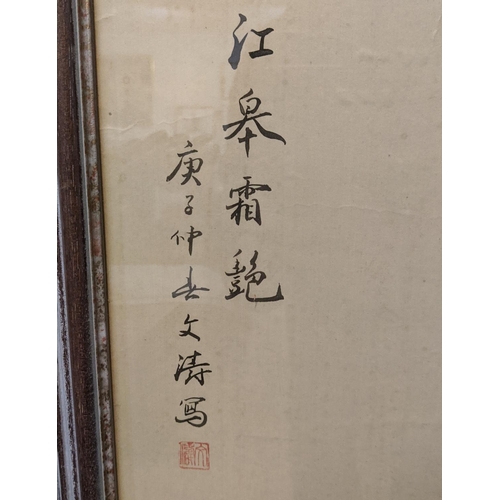 江皋霜艷
庚子仲春文涛寫